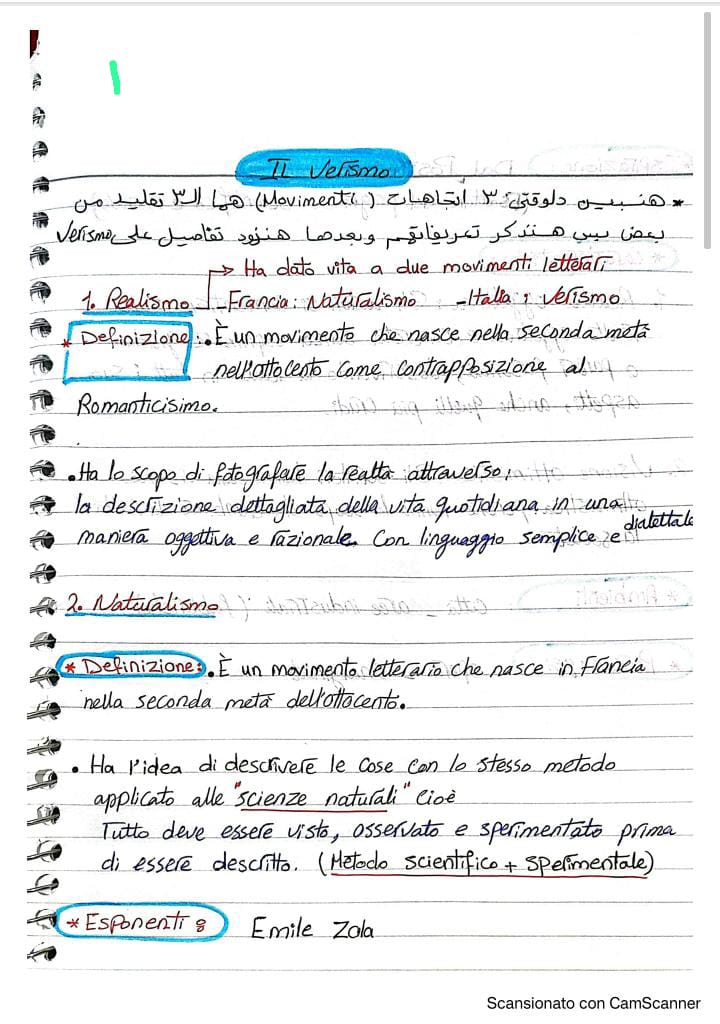 1
Il Verismo
* هنبين دلوقتي ٣ اتجاهات (Movimenti) هما الـ٣ تقليد من
بعض بس هنذكر تعريفاتهم وبعدها هنزود تفاصيل على Verismo
→ Ha dato vita a due movimenti letterari
1. Realismo - Francia: Naturalismo - Italia: Verismo
* Definizione: • È un movimento che nasce nella seconda metà
nell'ottocento come contrapposizione al
Romanticisimo.
• Ha lo scopo di fotografare la realtà attraverso:
la descrizione dettagliata della vita quotidiana in una
maniera oggettiva e razionale. Con linguaggio semplice e dialettale
2. Naturalismo
* Definizione: • È un movimento letterario che nasce in Francia
nella seconda metà dell'ottocento.
• Ha l'idea di descrivere le cose con lo stesso metodo
applicato alle "scienze naturali" cioè
Tutto deve essere visto, osservato e sperimentato prima
di essere descritto. (Metodo scientifico + sperimentale)
* Esponenti: Emile Zola
Scansionato con CamScanner